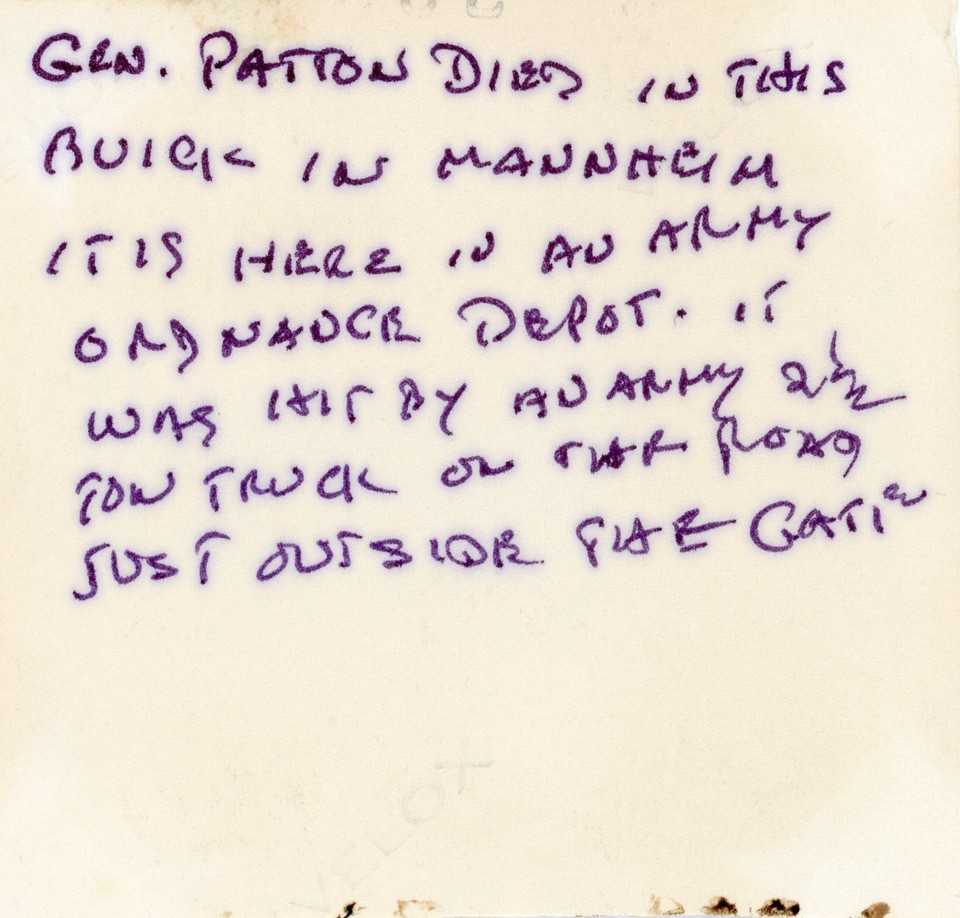 GEN. PATTON DIED IN THIS
BUICK IN MANNHEIM
IT IS HERE IN AN ARMY
ORDNANCE DEPOT. IT
WAS HIT BY AN ARMY 2 1/2
TON TRUCK ON THE ROAD
JUST OUTSIDE THE GATE
VELOX